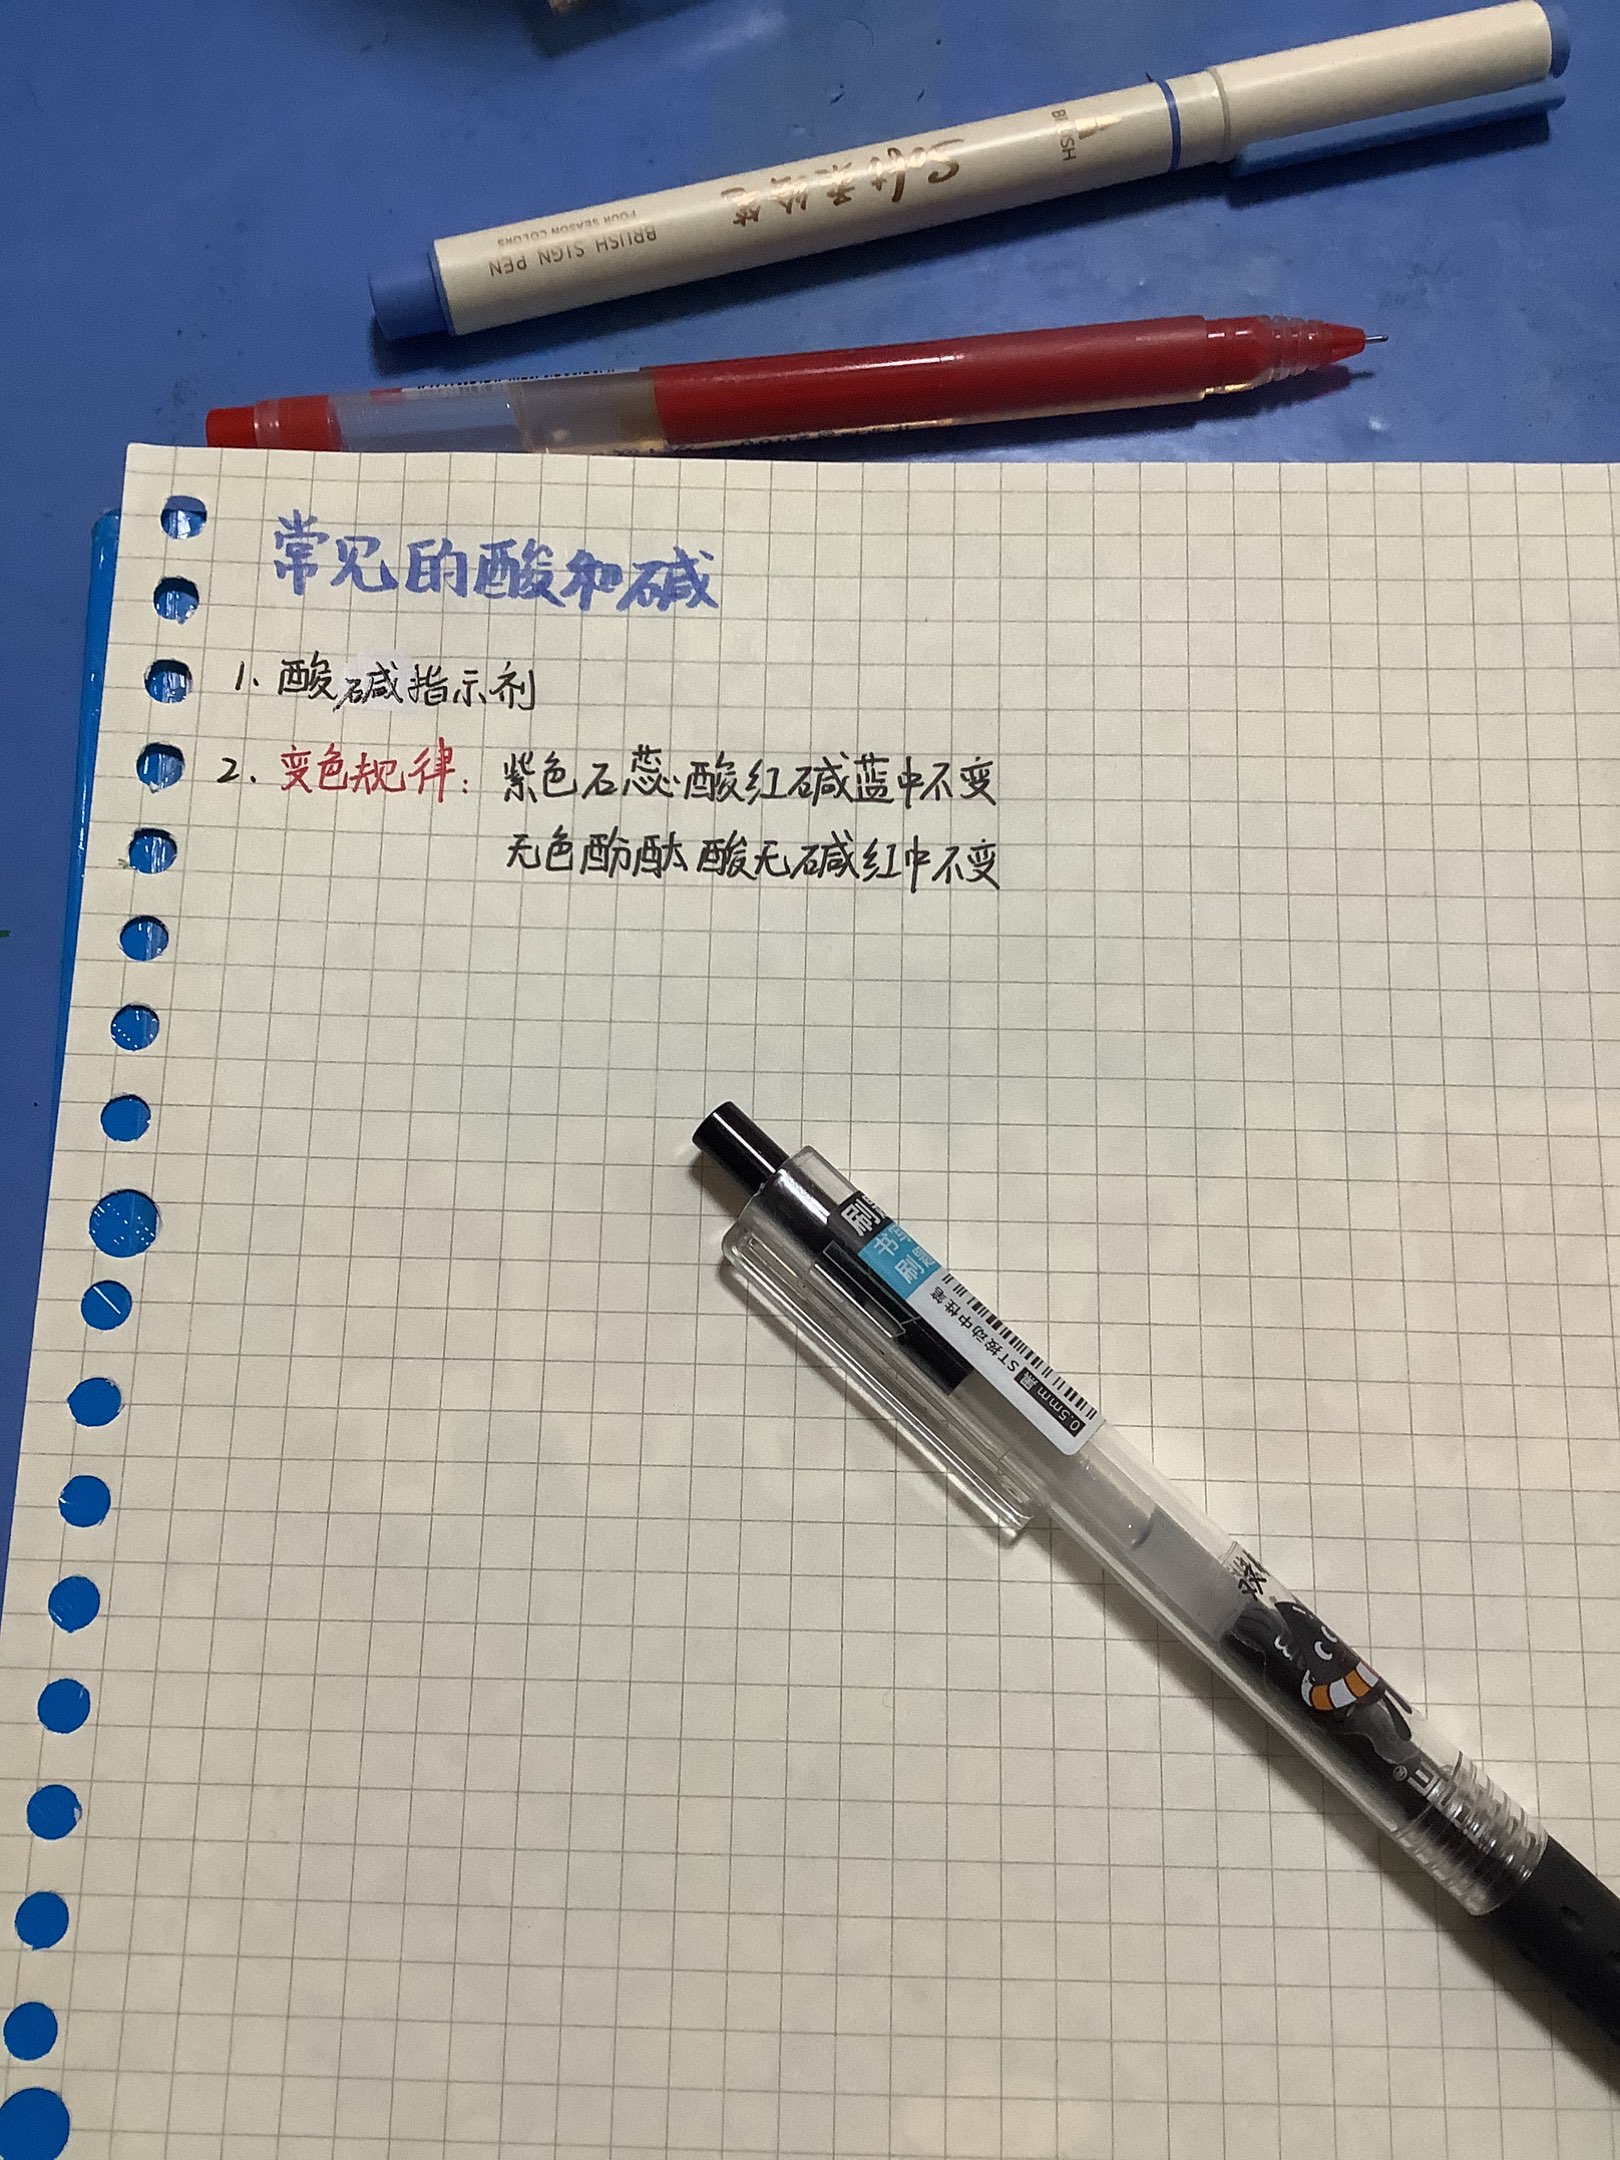 Soft柔绘笔
BRUSH
BRUSH SIGN PEN
FOUR SEASON COLORS
常见的酸和碱
1. 酸碱指示剂
2. 变色规律: 紫色石蕊:酸红碱蓝中不变
无色酚酞 酸无碱红中不变
刷
书刷
ST按动中性笔
0.5mm 黑